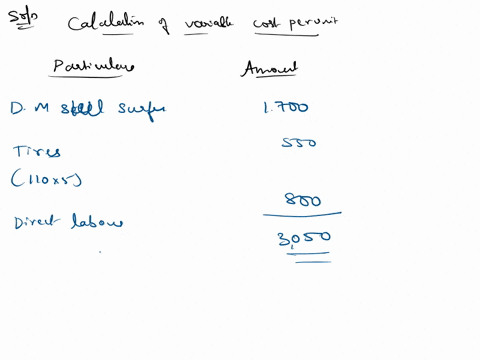 Soln Calculation of variable cost per unit
Particulars Amount
D. M steel surface 1.700
Tires 550
(110x5)
Direct labour 800
3,050